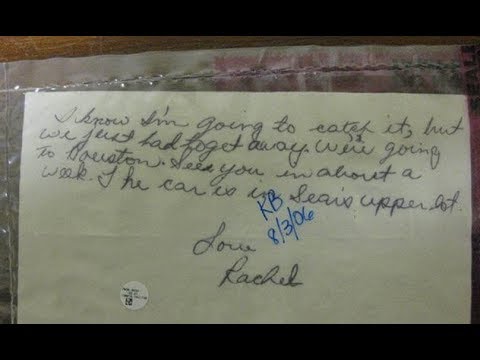 I know I'm going to catch it, but
we just had to get away. We're going
to Houston. See you in about a
week. The car is in Sears upper lot.
KB
8/3/06
Love
Rachel